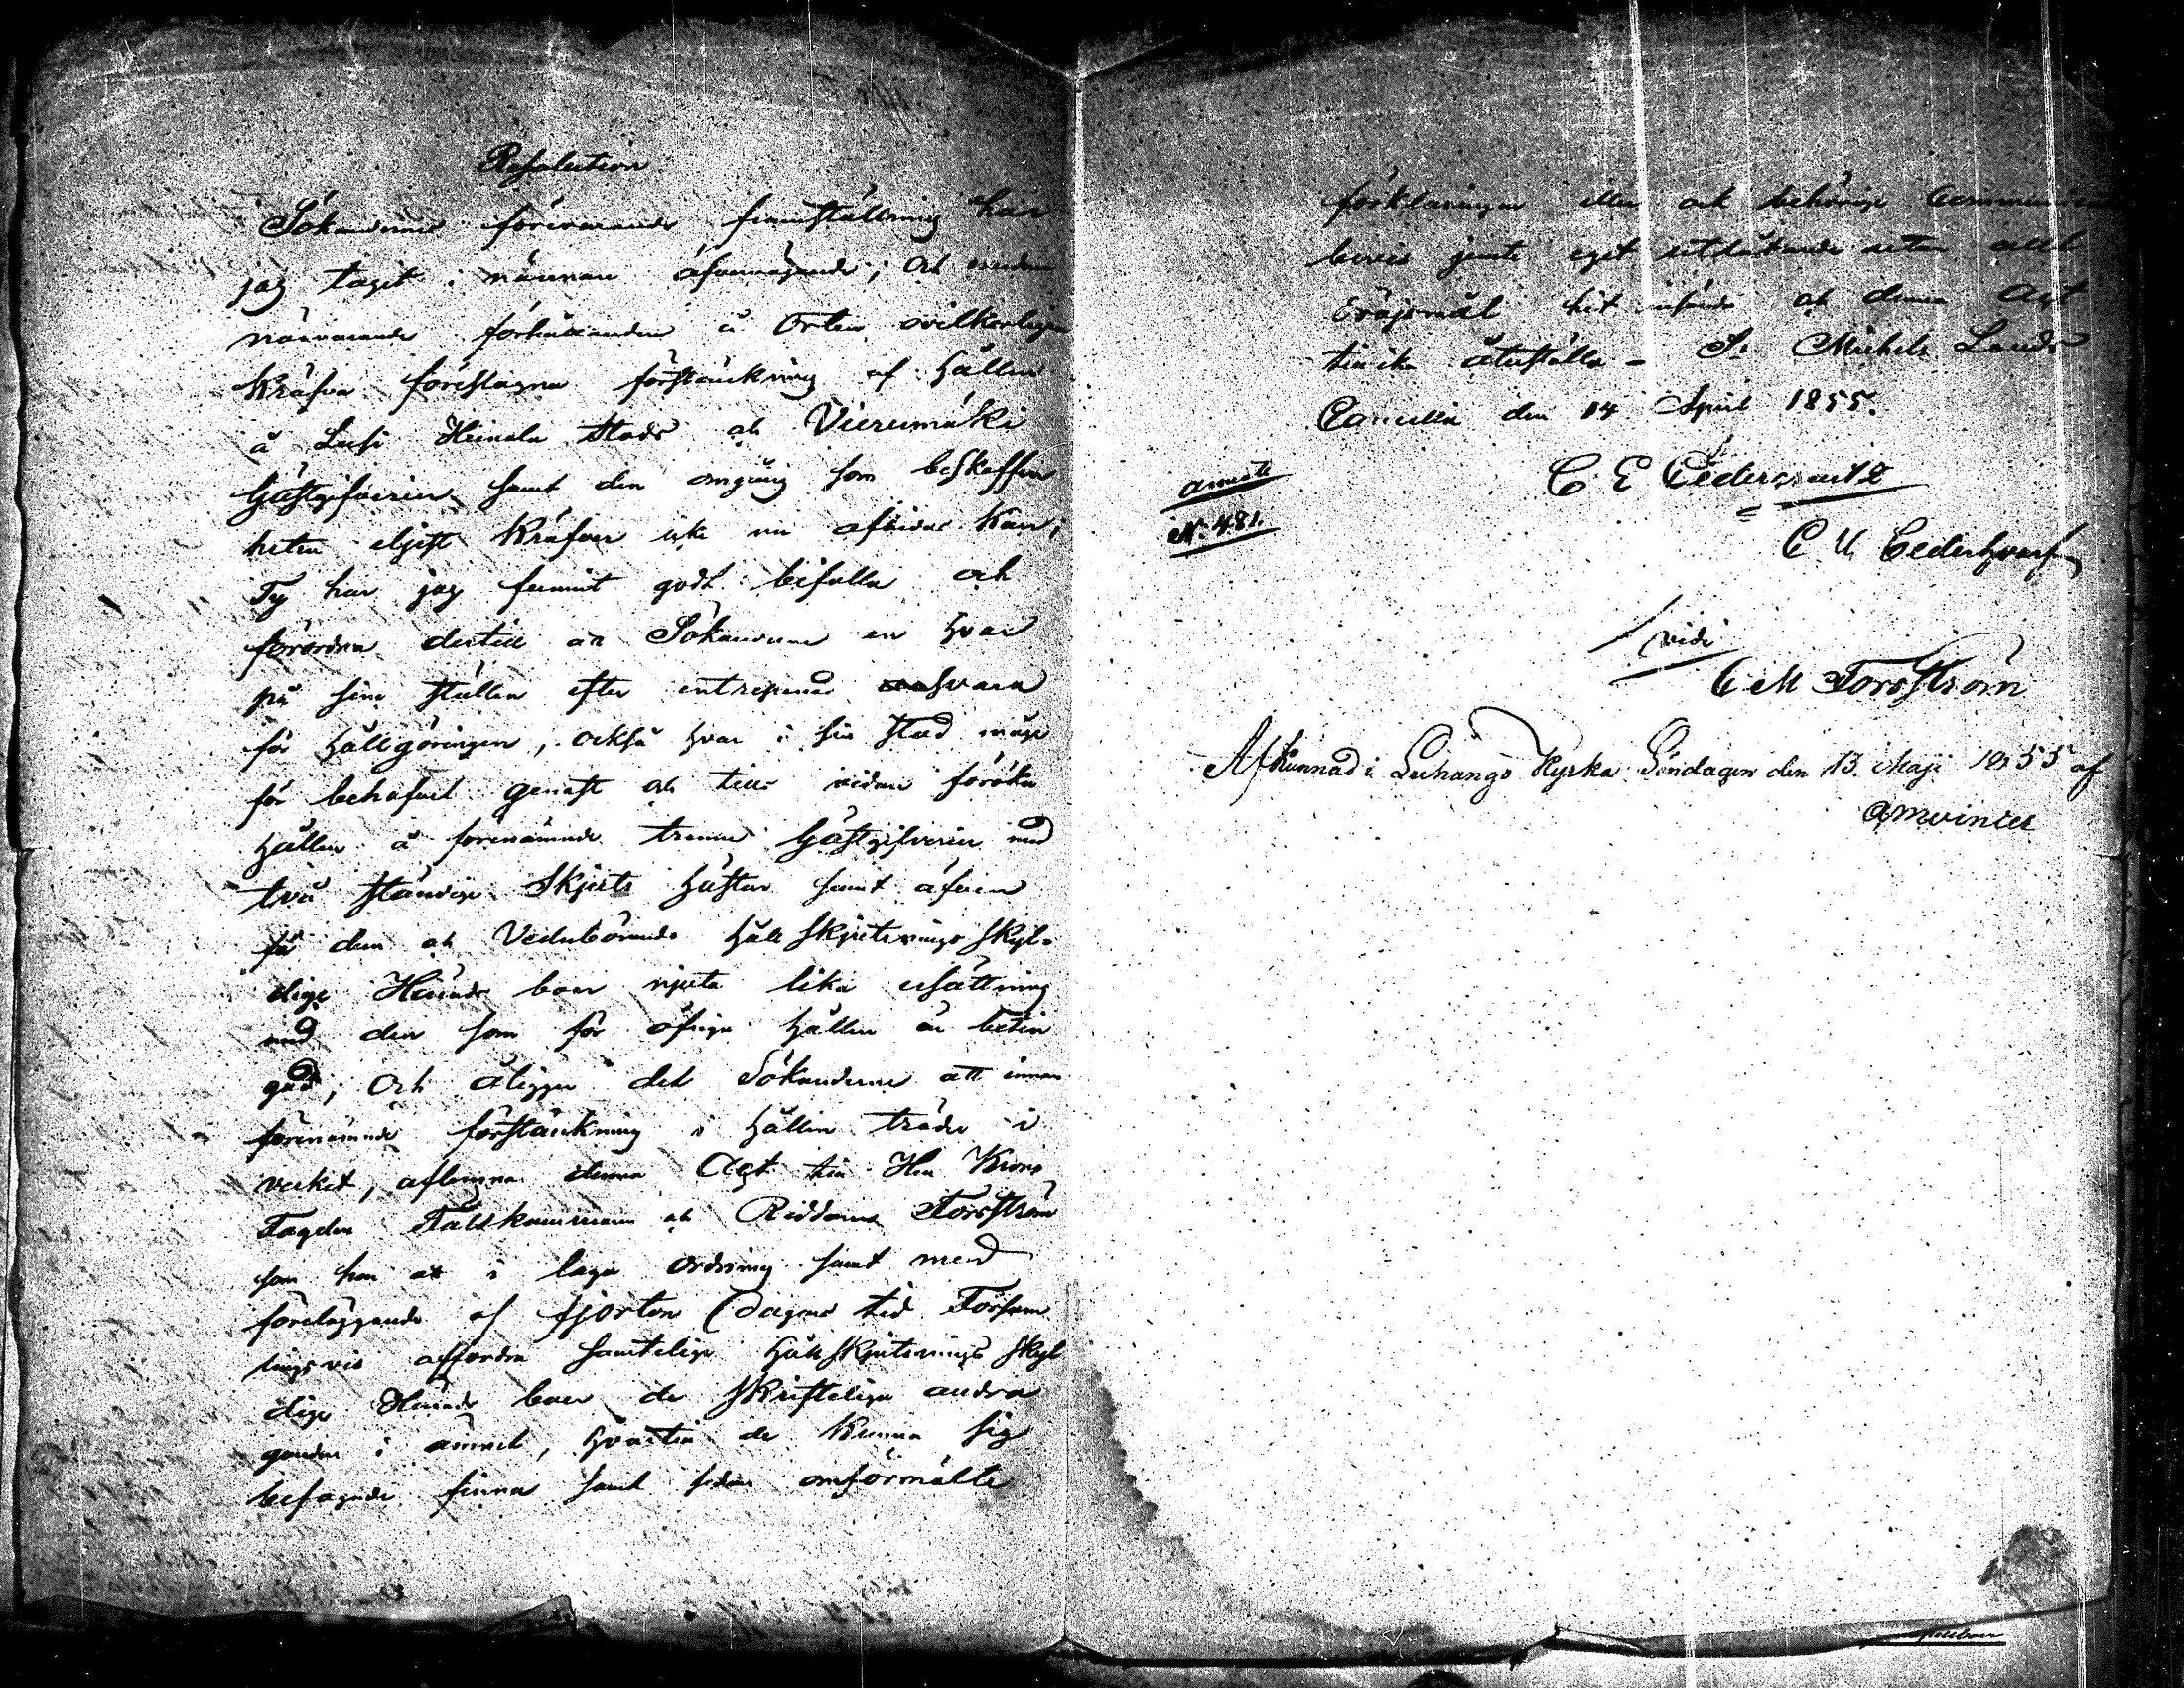 Resolution
Sökandernes förevarande framställning har
jag tagit i närmare öfvervägande; och emedan
närvarande förhållanden å Orten ovilkorligen
kräfva föreslagna förstärkning af hållen
å Lusi Heinola Stads och Vierumäki
Gästgifverier samt den omgång som beskaffen
heten eljest kräfver icke nu afbidas kan;
Ty har jag funnit godt bifalla och
förordna dertill att Sökanderne en hvar
på sine ställen efter entreprenad ansvara
för hållgöringen, också hvar i sin stad måge
för behofvet genast och tills vidare föröka
hållen å förenämnde trenne Gästgifverier med
två ständige Skjuts hästar samt äfven
för dem af Vederbörande håll skjutsnings skyl-
dige Härads boer njuta lika ersättning
med den som för öfrige hållen är betin
gad; Och åligger det Sökanderne att innan
förenämnde förstärkning i hållen träder i
verket, aflemna denna Act till Herr Krono
Fogden Fältkamreraren och Riddaren Forsström
som har att i laga ordning samt med
föreläggande af fjorton Dagars tid Försam
lingsvis affordra samtelige håll skjutsnings skyl
dige Härads boer de skrifteliga andra
ganden i ämnet, hvartill de kunna sig
befogade finna samt sedan omförmälte
förklaringar eller ock behörige Communications
bevis jemte eget utlåtande utan allt
dröjsmål hit insända och denna Act
till ika återställa - St Michels Lands
Cancelli den 14 April 1855.
C E Cedercreutz
anmält
N. 481.
C U Cederhvarf
vidi
C M Forsström
Afkunnad i Luhango Kyrka Söndagen den 13. Maji 1855 af